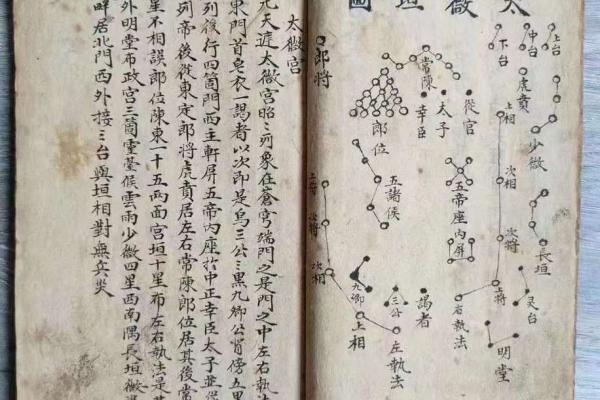 太微垣圖
上台
中台
下台
虎賁
少微
長垣
灵台
明堂
上相
次相
次將
上將
右執法
從官
太子
幸臣
常陳
郎位
郎將
五帝座內屏
五諸侯
謁者
三公
九卿
左執法
上相
次相
次將
上將
太微宮
元天遮太微宮昭〻列象在蒼穹端門之是門之中左右執
東門首皂衣一謁者以次即是烏三公〻黑九卿公背傍五
列後行四箇門西主軒屏五帝內座於中正幸臣太子並
列帝後從東定郎將虎賁居左右常陳郎位居其後常
星不相誤郎位陳東一十五兩面宮垣十星布左右執法是
外明堂布政宮三箇靈臺候雲雨少微四星西南隅長垣微
畔居北門西外接三台與垣相對無兵災